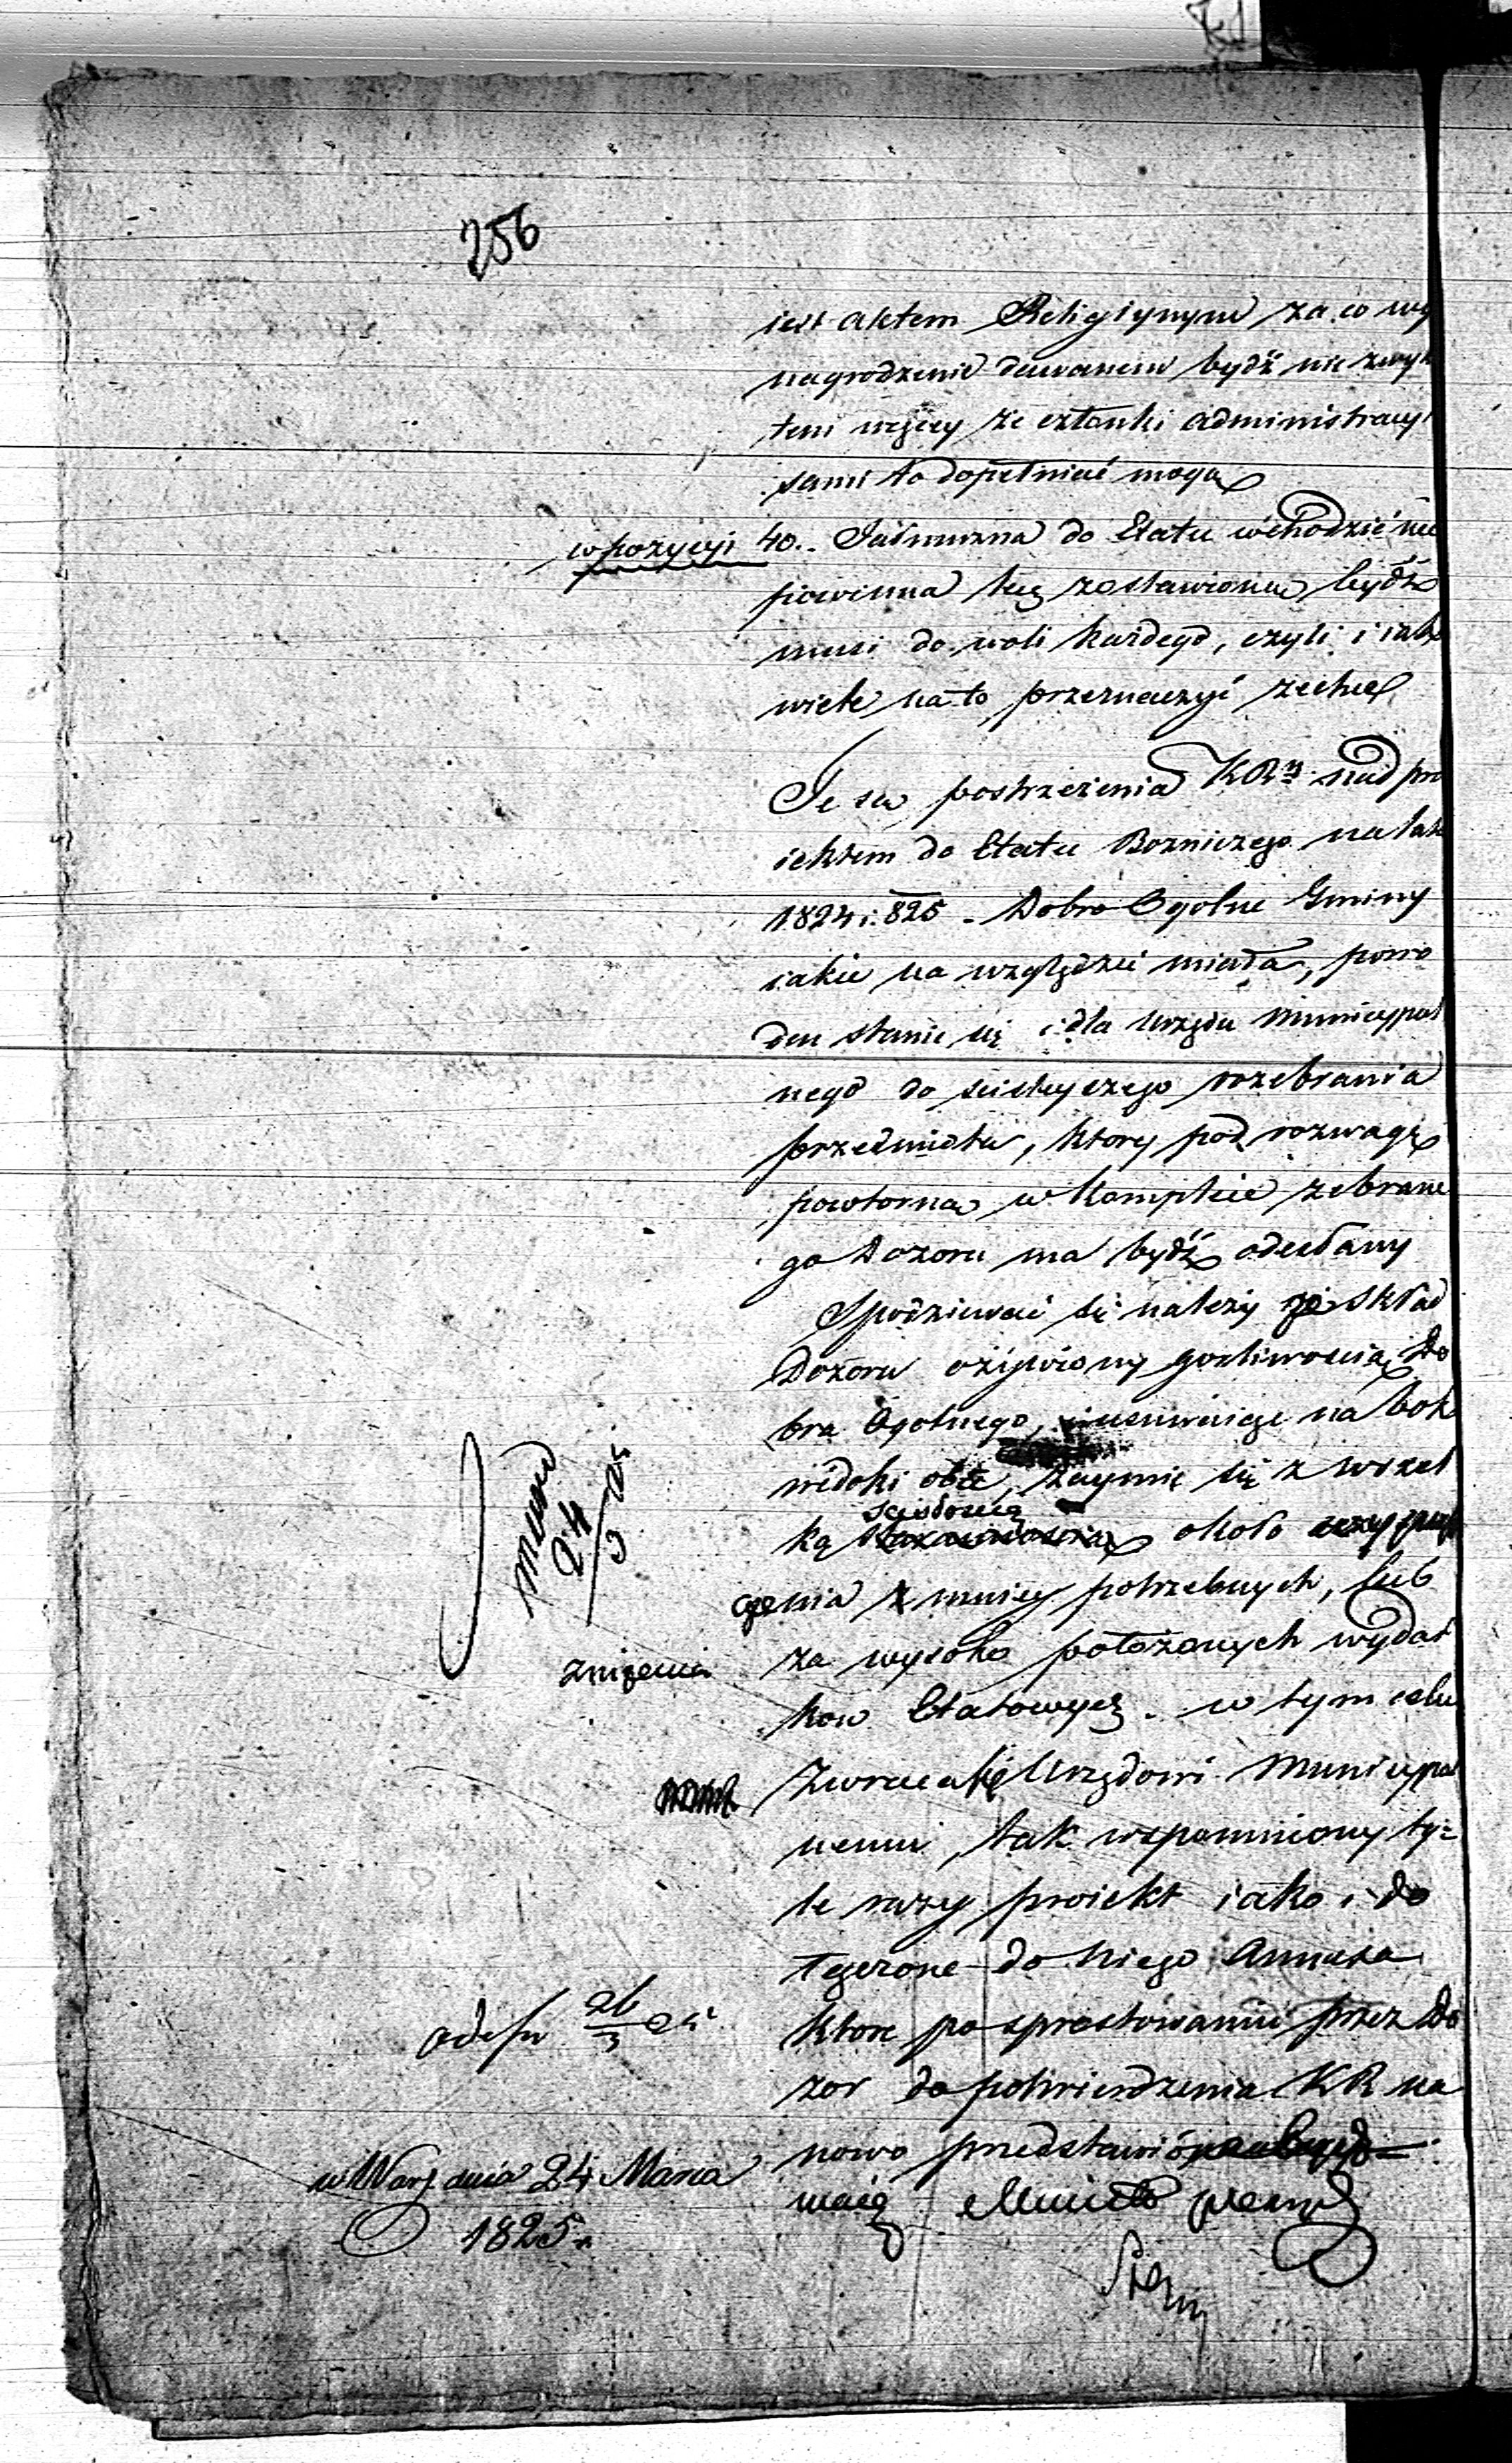 256
iest aktem Religiynym za co wy
nagrodzenie dawanem bydź nie zwyk
tem więcey że członki administracyi
sami to dopełniać mogą
w pozycyi 40. Jałmużna do Etatu wchodzić nie
powinna lecz zostawioną bydź
musi do woli każdego, czyli i iak
wiele na to przeznaczyć zechce
Te są postrzeżenia KRy nad pro
iektem do Etatu Bożniczego na lata
1824 i 825 - Dobro Ogolne Gminy
iakie na względzie miała, powo
dem stanie się i dla Urzędu Municypal
nego do ściśleyszego rozebrania
przedmiotu, ktory pod rozwagę
powtorną w komplecie zebrane
go Dozoru ma bydź odesłany
Spodziewać się należy że skład
Dozoru ożywiony gorliwością Do
bra Ogolnego, usuwaiąc na bok
widoki obce, zaymie się z wszel
ką ścisłością około
czenia mniey potrzebnych, lub
zniżenia za wysoko położonych wydat
kow Etatowych. w tym celu
Zwraca się Urzędowi Municypal
nemu, tak wspomniony ty=
le razy proiekt iako i do
łączone do niego Annexa
ktore po sprostowaniu przez Do
zor do potwierdzenia KR na
nowo przedstawi
maią
24/3 25
26/3 25
w Warz dnia 24 Marca
1825 r.